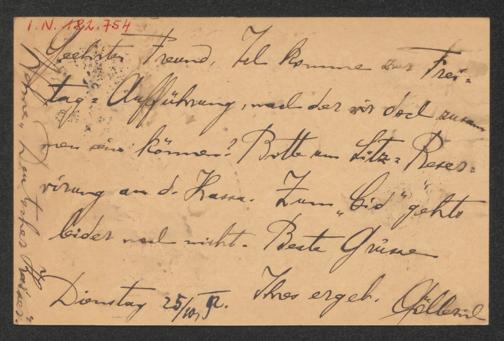 I.N. 182.754
Geehrter Freund, Ich komme zur Frei-
tag-Aufführung, nach der wir doch zusam
men sein können? Bitte um Sitz-Reser-
virung an d. Kassa. Zum „Cid“ gehts
leider noch nicht. Beste Grüsse
Ihres ergeb.
Dienstag 25/10 92.